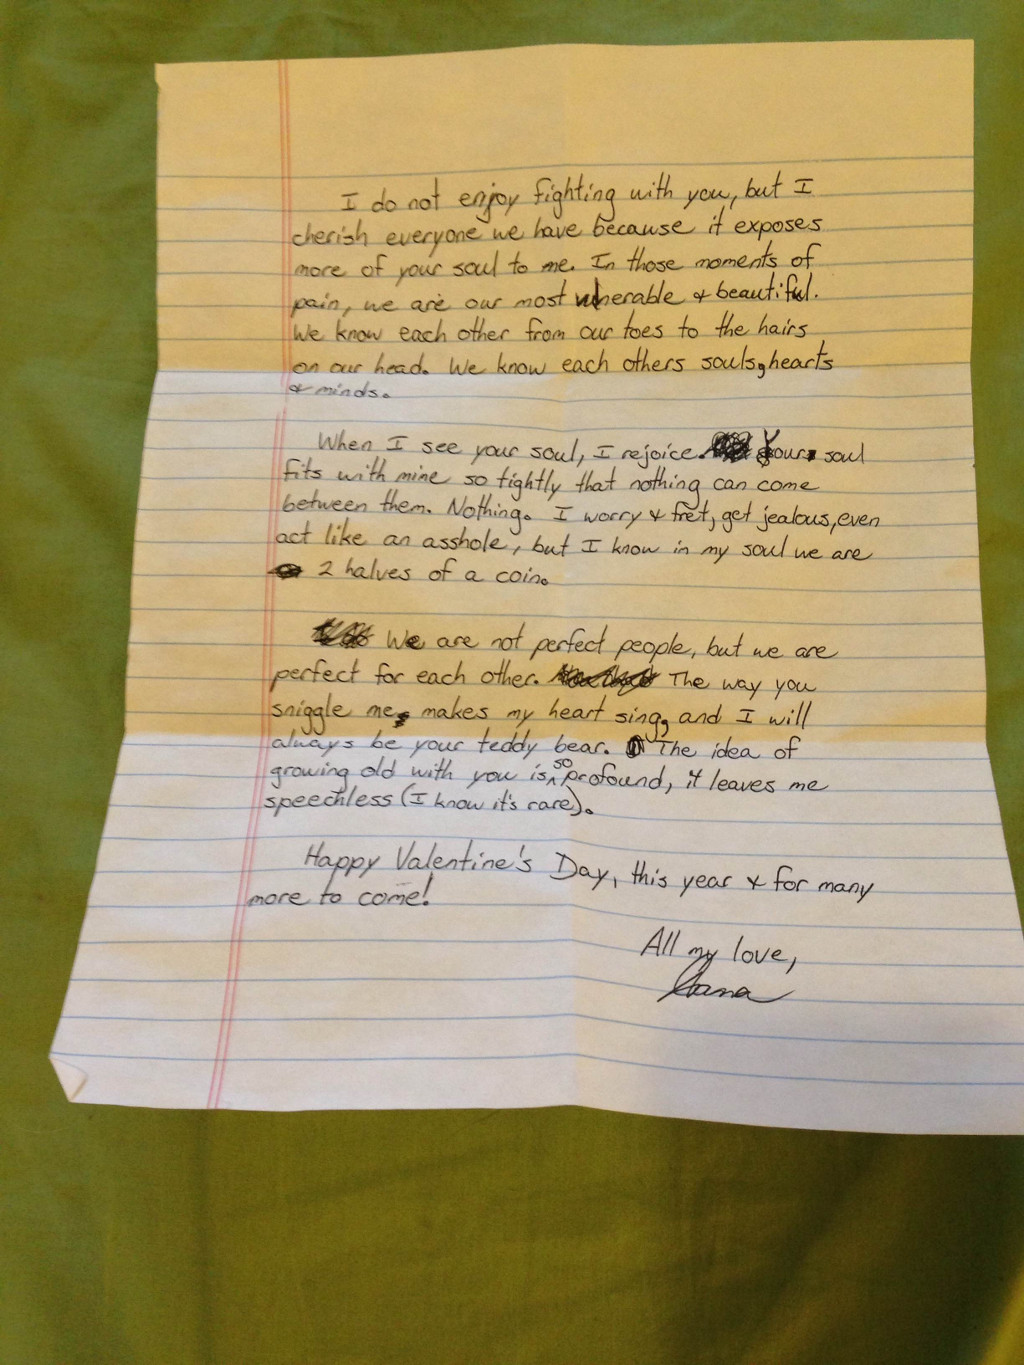 I do not enjoy fighting with you, but I
cherish everyone we have because it exposes
more of your soul to me. In those moments of
pain, we are our most vulnerable & beautiful.
We know each other from our toes to the hairs
on our head. We know each others souls, hearts
& minds.
When I see your soul, I rejoice. Your soul
fits with mine so tightly that nothing can come
between them. Nothing. I worry & fret, get jealous, even
act like an asshole, but I know in my soul we are
2 halves of a coin.
We are not perfect people, but we are
perfect for each other. The way you
sniggle me, makes my heart sing, and I will
always be your teddy bear. The idea of
growing old with you is so profound, it leaves me
speechless (I know it's rare).
Happy Valentine's Day, this year & for many
more to come!
All my love,